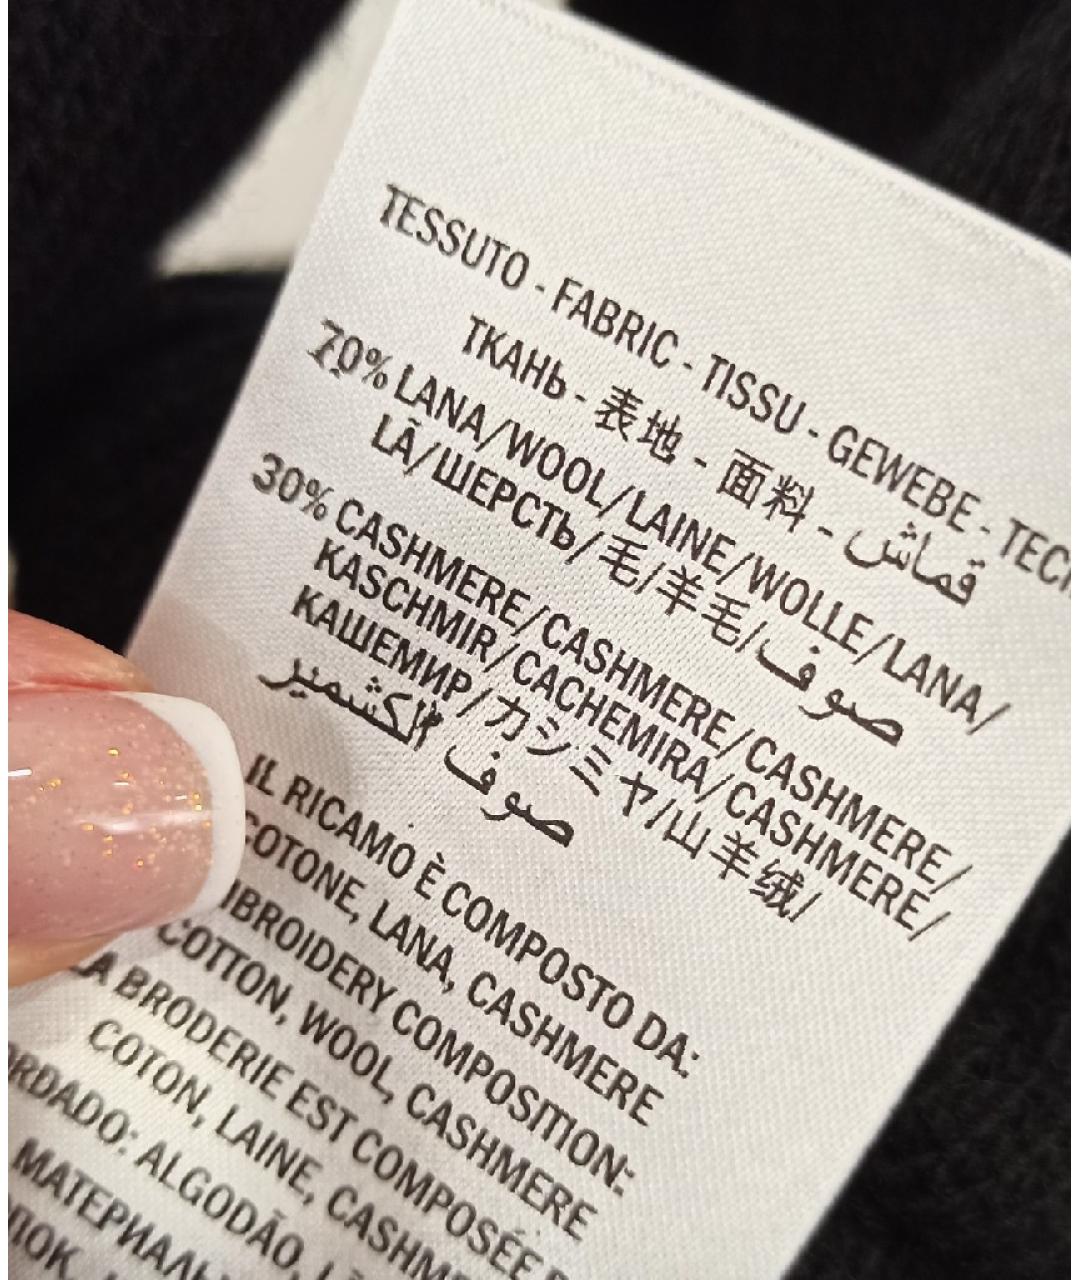 TESSUTO - FABRIC - TISSU - GEWEBE -
ТКАНЬ - 表地 - 面料 - قماش
70% LANA/WOOL/LAINE/WOLLE/LANA/
LÃ/ШЕРСТЬ/毛/羊毛/صوف
30% CASHMERE/CASHMERE/CASHMERE/
KASCHMIR/CACHEMIRA/CASHMERE/
КАШЕМИР/カシミヤ/山羊绒/
صوف الكشمير
IL RICAMO È COMPOSTO DA:
COTONE, LANA, CASHMERE
COMPOSITION:
COTTON, WOOL, CASHMERE
LA BRODERIE EST COMPOSÉE
COTON, LAINE,
ALGODÃO,